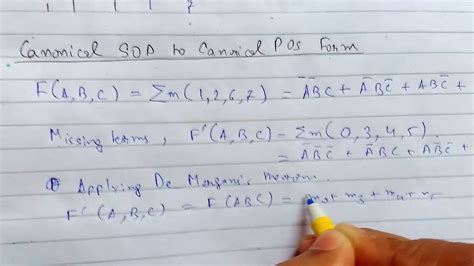 Canonical SOP to Canonical POS Form
F(A,B,C) = Σm(1,2,6,7) = A̅B̅C + A̅BC̅ + ABC̅ +
Missing terms, F'(A,B,C) = Σm(0,3,4,5).
= A̅B̅C̅ + A̅BC + AB̅C̅ +
Applying De Morgan's theorem
F'(A,B,C) = F(ABC) = m₀ + m₃ + m₄ + m₅